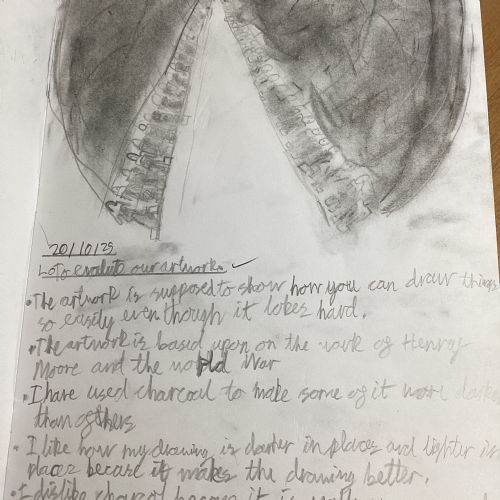 20/10/25
LO: To evalute our artwork.
• The artwork is supposed to show how you can draw things
so easily even though it lokes hard.
• The artwork is based upon on the work of Henry
Moore and the world War
• I have used charcoal to make some of it more darker
than others
• I like how my drawing is darker in places and lighter in
places becase it makes the drawing better.
• I dislike charcoal becaus it is